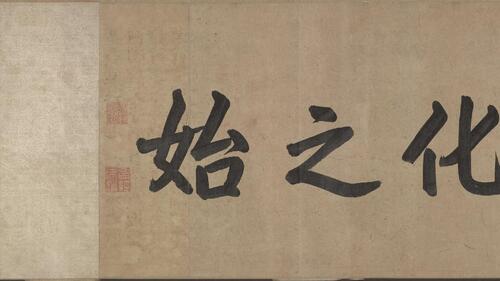 化之始